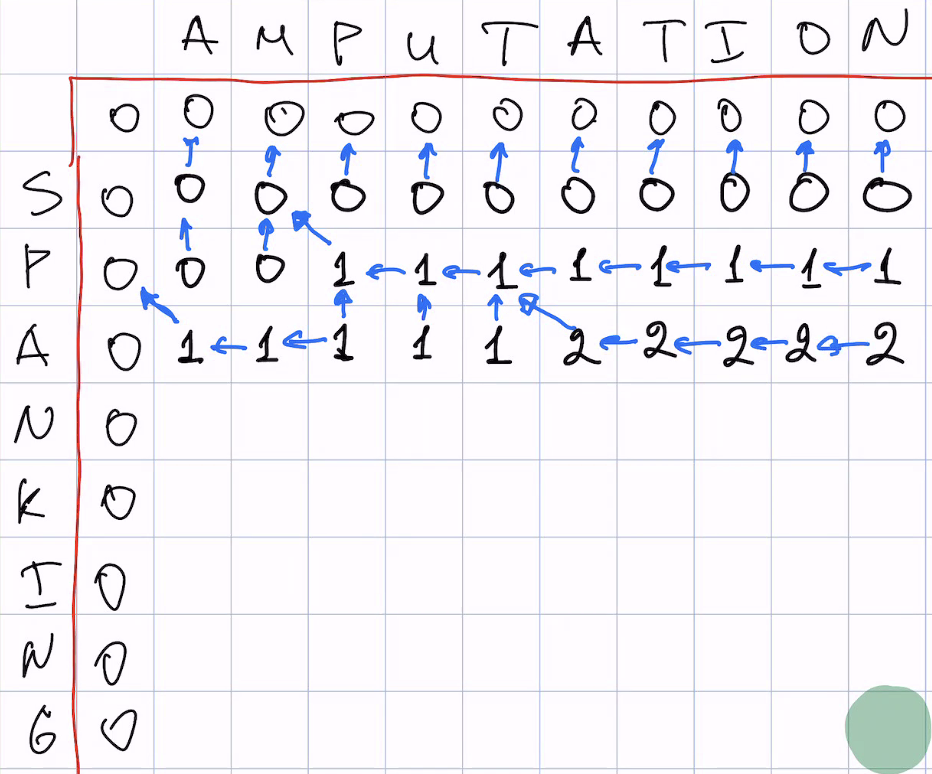 A M P U T A T I O N
0 0 0 0 0 0 0 0 0 0 0
S 0 0 0 0 0 0 0 0 0 0 0
P 0 0 0 1 1 1 1 1 1 1 1
A 0 1 1 1 1 1 2 2 2 2 2
N 0
K 0
I 0
N 0
G 0